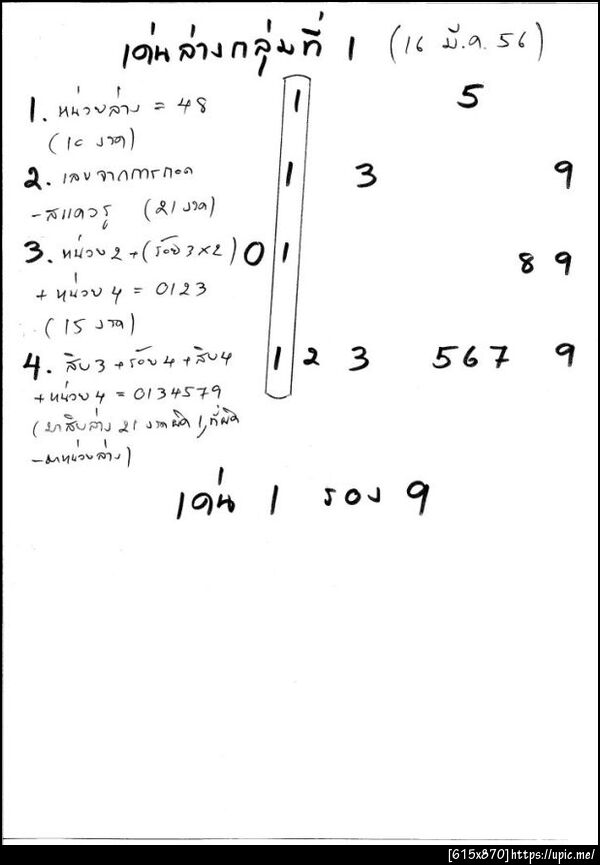 เด่นล่างกลุ่มที่ 1 (16 มี.ค. 56)
1. หน่วยล่าง = 48 1 5
(10 งวด)
2. เลขจากการถอด 1 3 9
-สแควรู (21 งวด)
3. หน่วย 2 + (ร้อย 3 x 2) 0 1 8 9
+ หน่วย 4 = 0123
(15 งวด)
4. สิบ 3 + ร้อย 4 + สิบ 4 1 2 3 5 6 7 9
+ หน่วย 4 = 0134579
(มาสิบล่าง 21 งวดผิด 1, ที่ผิด
-มาหน่วยล่าง)
เด่น 1 รอง 9
[615x870]https://upic.me/